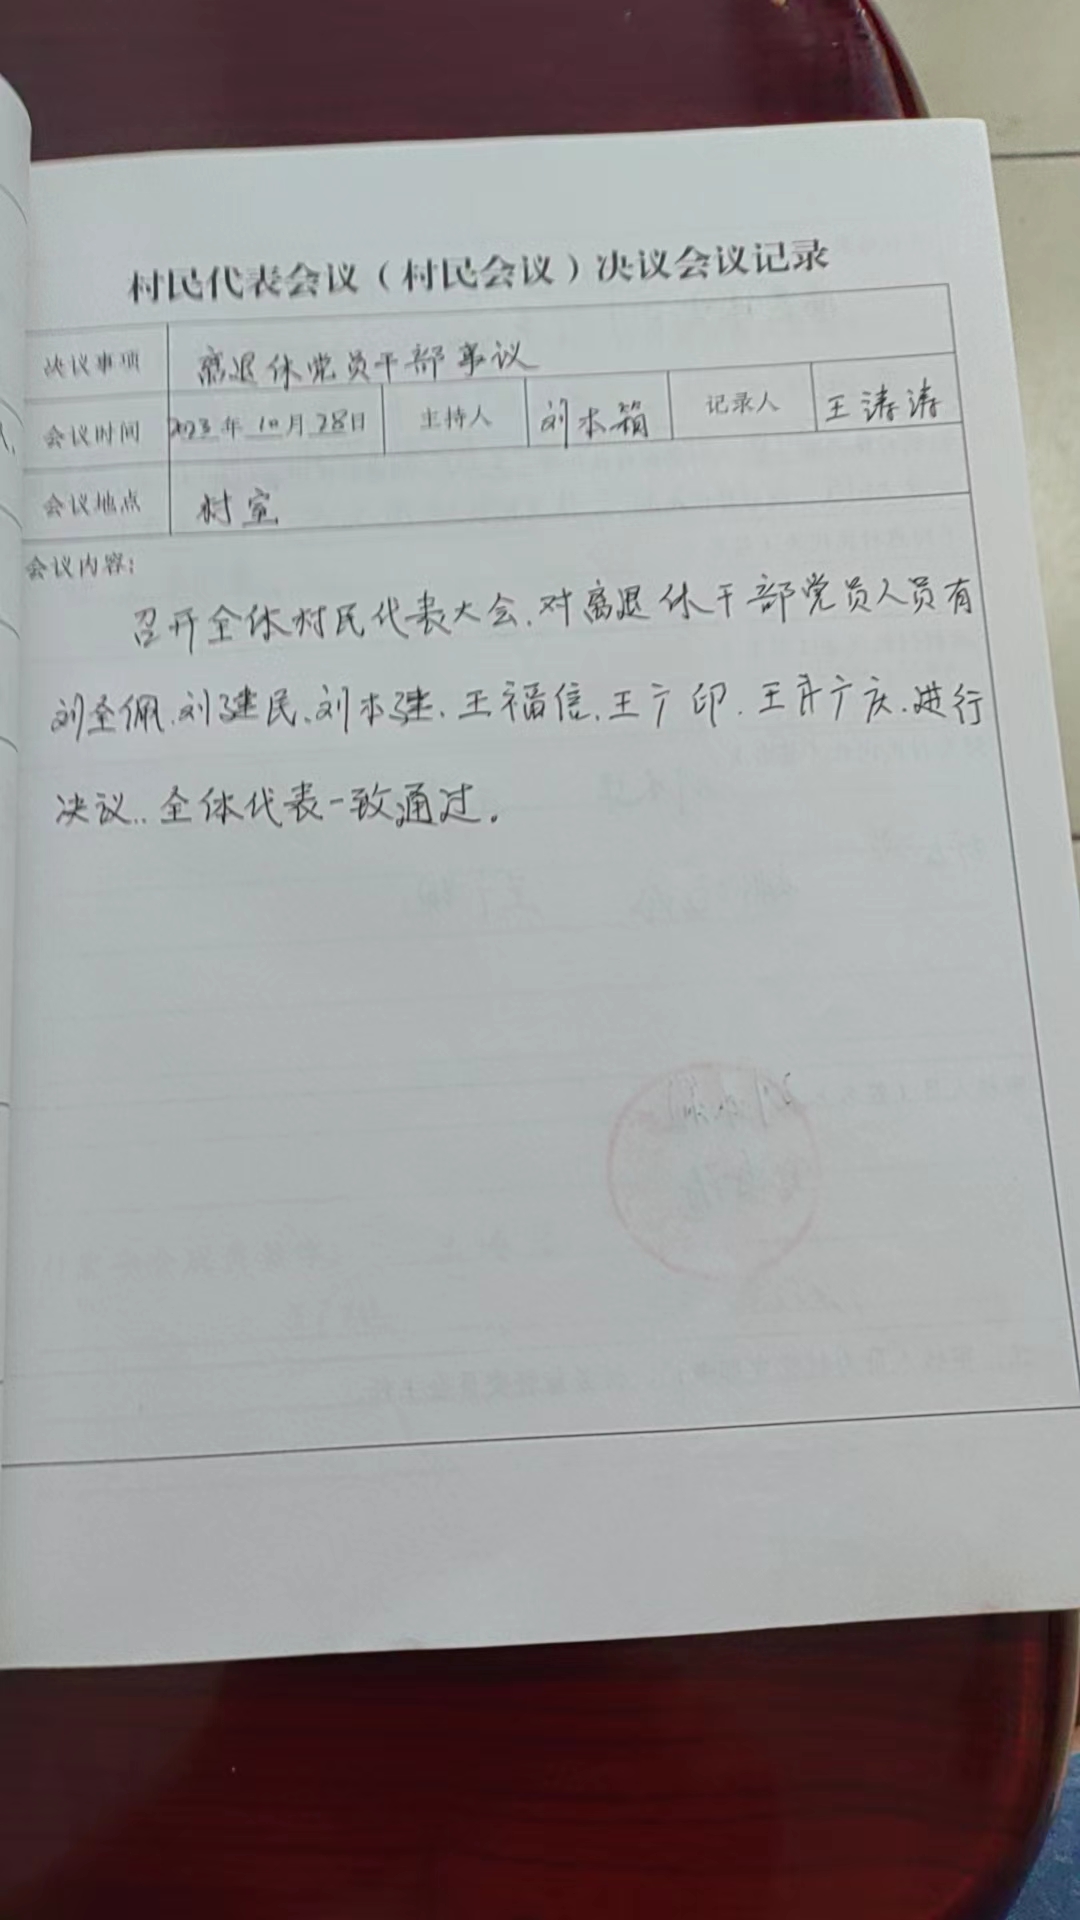 村民代表会议（村民会议）决议会议记录
决议事项 离退休党员干部事议
会议时间 2023年10月28日 主持人 刘本箱 记录人 王涛涛
会议地点 村室
会议内容：
召开全体村民代表大会.对离退休干部党员人员有
刘圣佩.刘建民.刘本建.王福信.王广印.王广庆.进行
决议..全体代表一致通过.